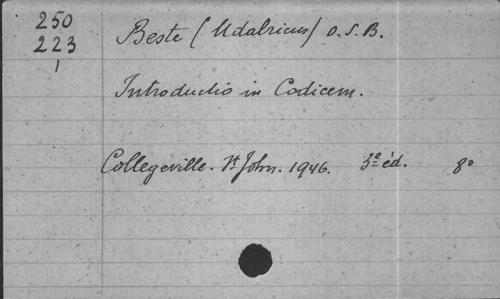 250
223
1
Beste (Udalricus) O.S.B.
Introductio in Codicem.
Collegeville. St John. 1946. 3e éd. 8º